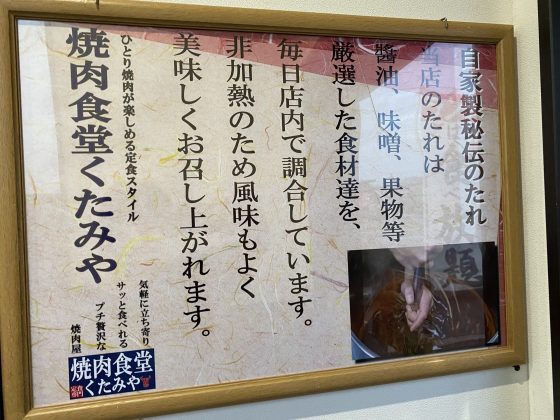 自家製秘伝のたれ
当店のたれは
醬油、味噌、果物等
厳選した食材達を、
毎日店内で調合しています。
非加熱のため風味もよく
美味しくお召し上がれます。
ひとり焼肉が楽しめる定食スタイル
焼肉食堂くたみや
気軽に立ち寄り
サッと食べれる
プチ贅沢な
焼肉屋
焼肉食堂
くたみや
放題